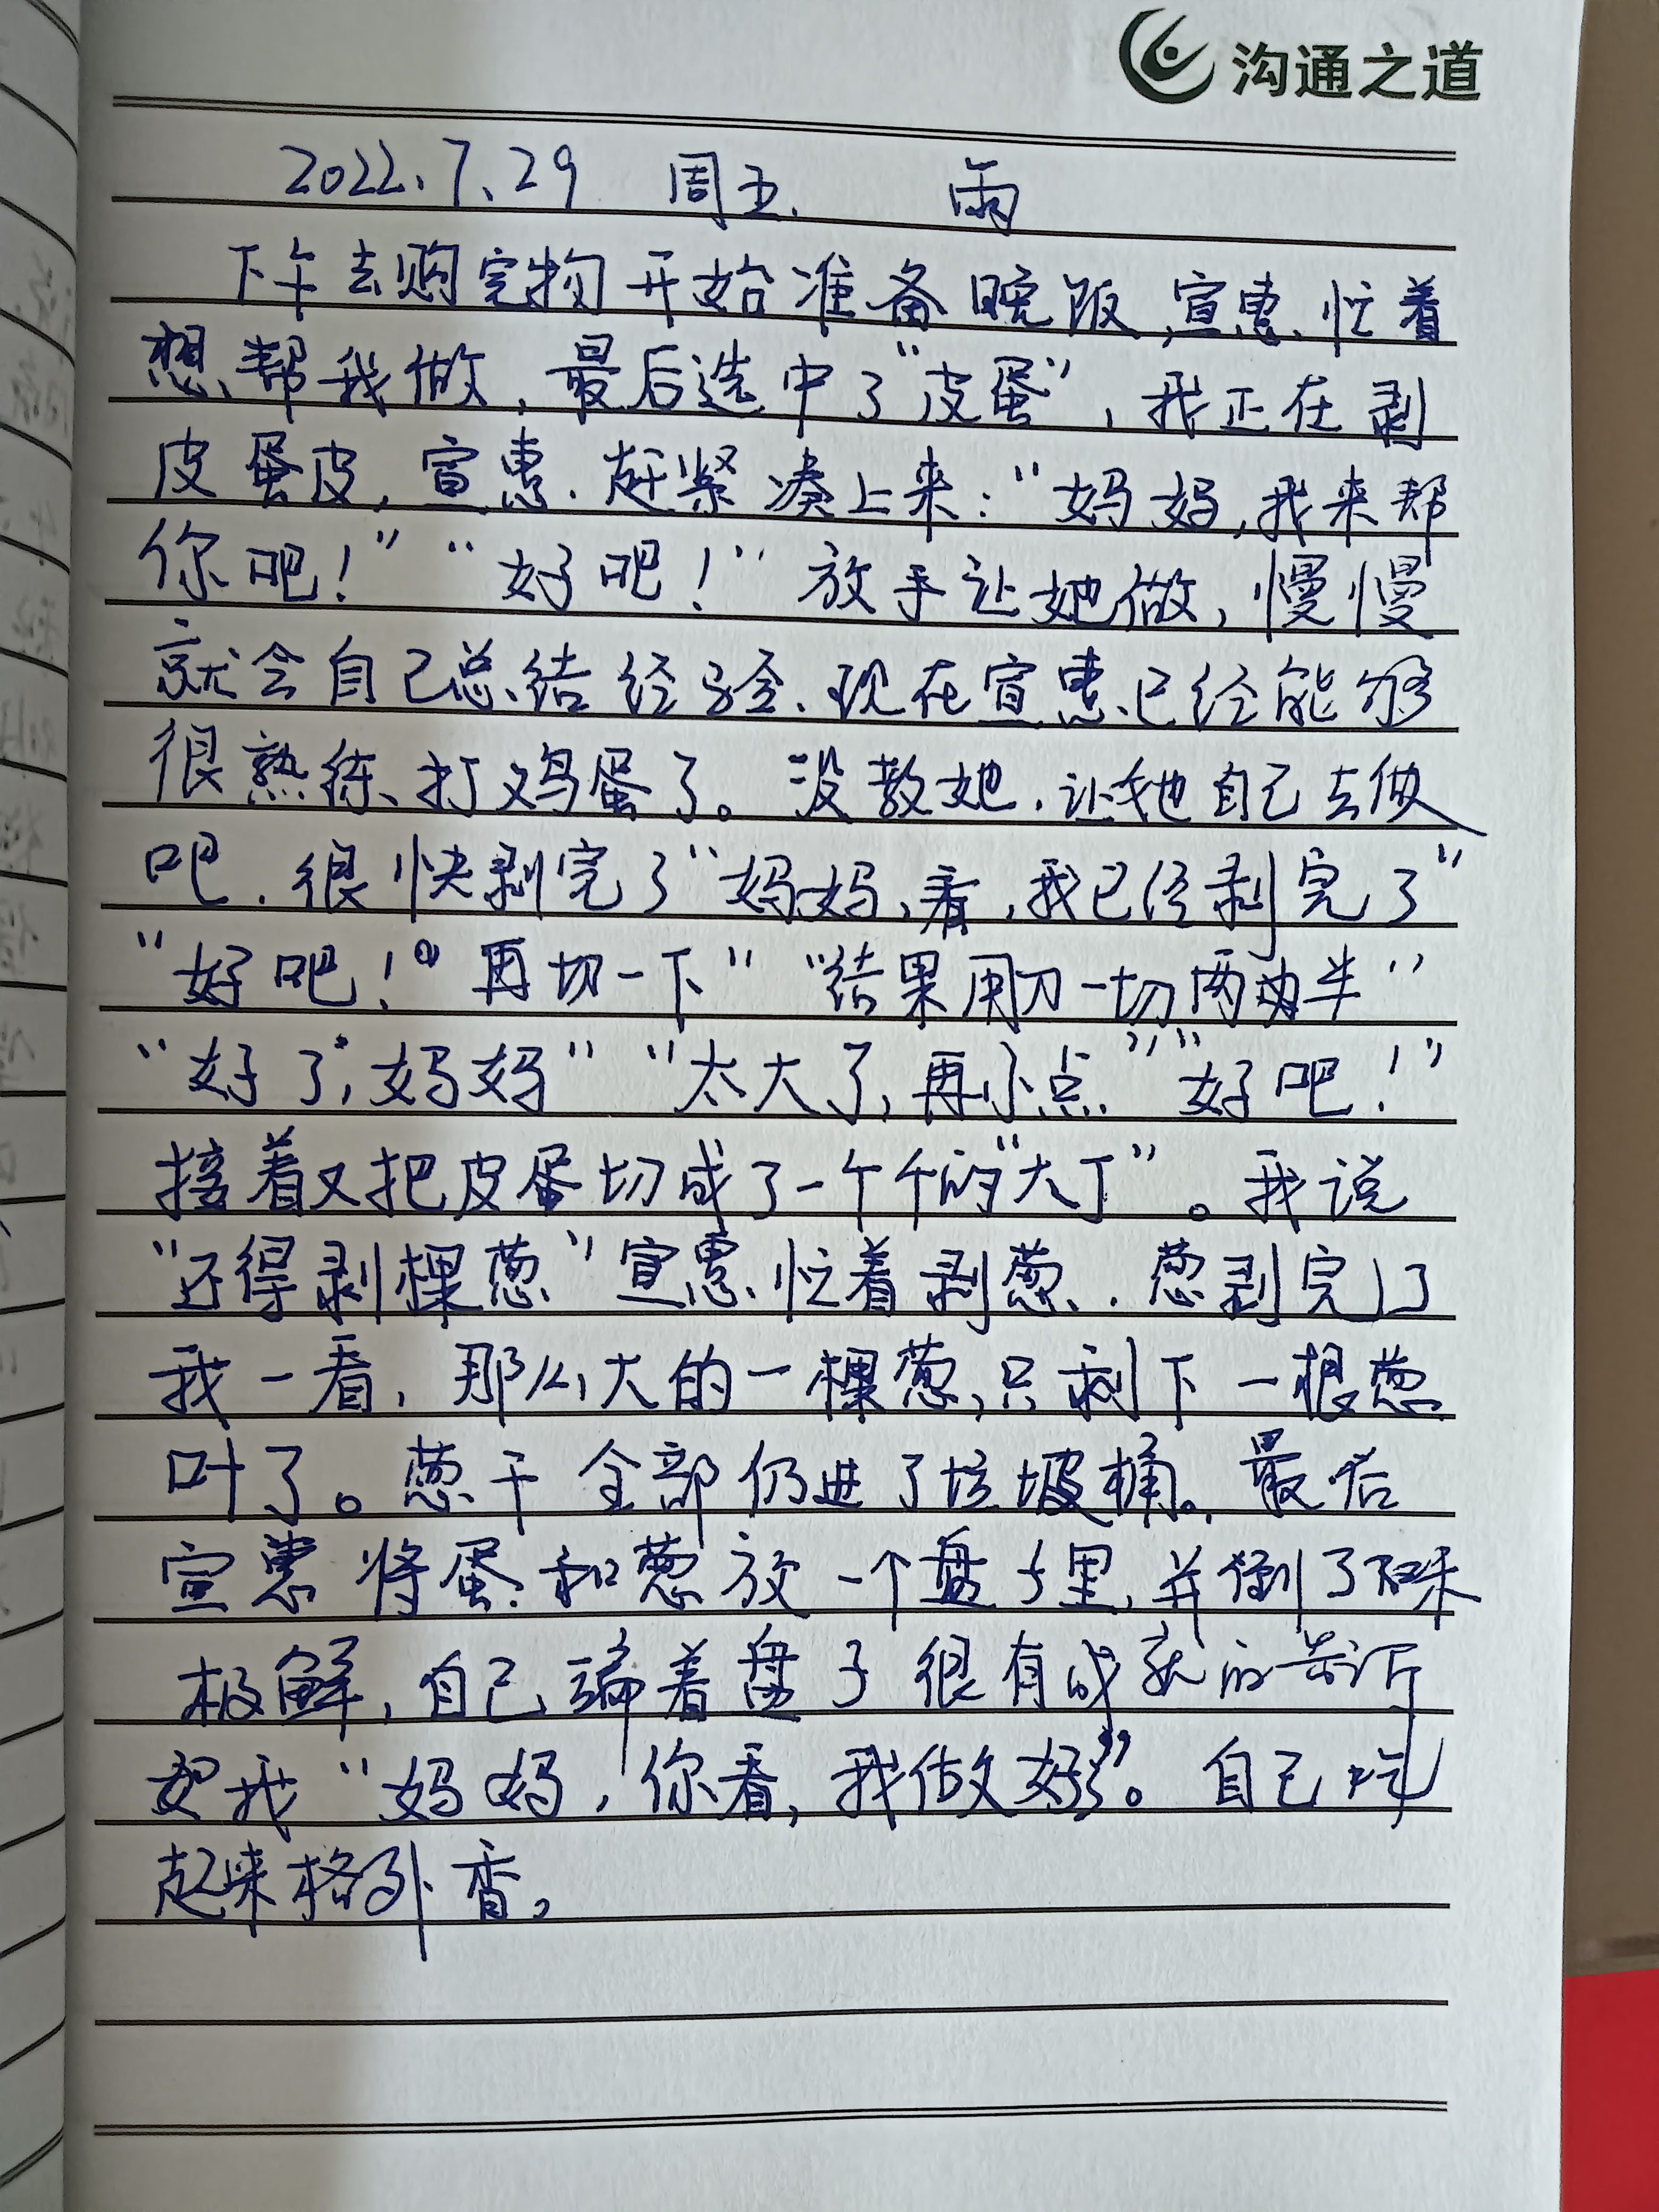 沟通之道
2022.7.29 周五. 雨
下午去购完物开始准备晚饭,宣惠忙着
想帮我做,最后选中了“皮蛋”,我正在剥
皮蛋皮,宣惠.赶紧凑上来:“妈妈,我来帮
你吧!”“好吧!”放手让她做,慢慢
就会自己总结经验.现在宣惠已经能够
很熟练打鸡蛋了。没教她.让她自己去做
吧.很快剥完了“妈妈,看,我已经剥完了”
“好吧!再切一下”“结果用刀一切两半”
“好了,妈妈”“太大了,再小点”“好吧!”
接着又把皮蛋切成了一个个的“大丁”。我说
“还得剥棵葱”宣惠忙着剥葱..葱剥完了
我一看,那么大的一棵葱,只剩下一根葱
叶了。葱干全部仍进了垃圾桶。最后
宣惠将蛋和葱放一个盘子里,并倒了味
极鲜,自己端着盘子很有成就的告诉
我“妈妈,你看,我做好了”。自己吃
起来格外香。